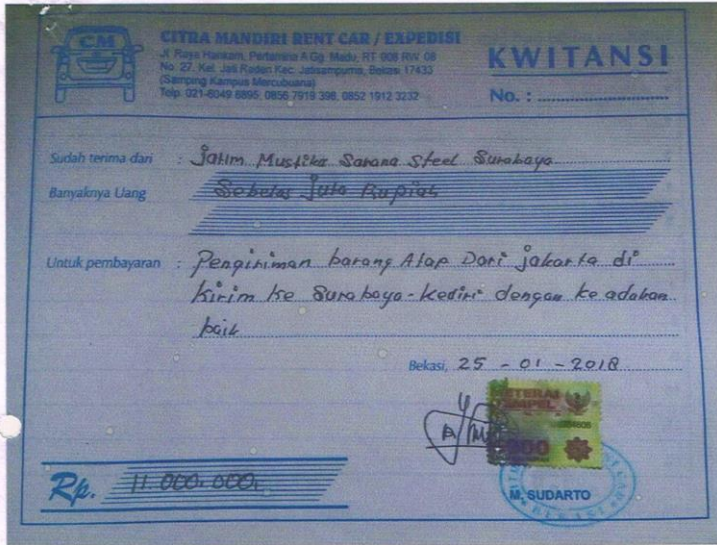 CM
CITRA MANDIRI RENT CAR / EXPEDISI
Jl. Raya Hankam, Pertamina A Gg. Madu, RT 006 RW 08
No. 27, Kel. Jati Raden Kec. Jatisampurna, Bekasi 17433
(Samping Kampus Mercubuana)
Telp. 021-6049 8895, 0856 7919 398, 0852 1912 3232
KWITANSI
No. :
Sudah terima dari : Jatim Mustika Sarana Steel Surabaya
Banyaknya Uang Sebelas Juta Rupiah
Untuk pembayaran : Pengiriman barang Atap Dari jakarta di
Kirim Ke Surabaya - Kediri dengan ke adahan
baik
Bekasi, 25 - 01 - 2018
METERAI
TEMPEL
000
Rp. 11.000.000,
M. SUDARTO
BEKASI